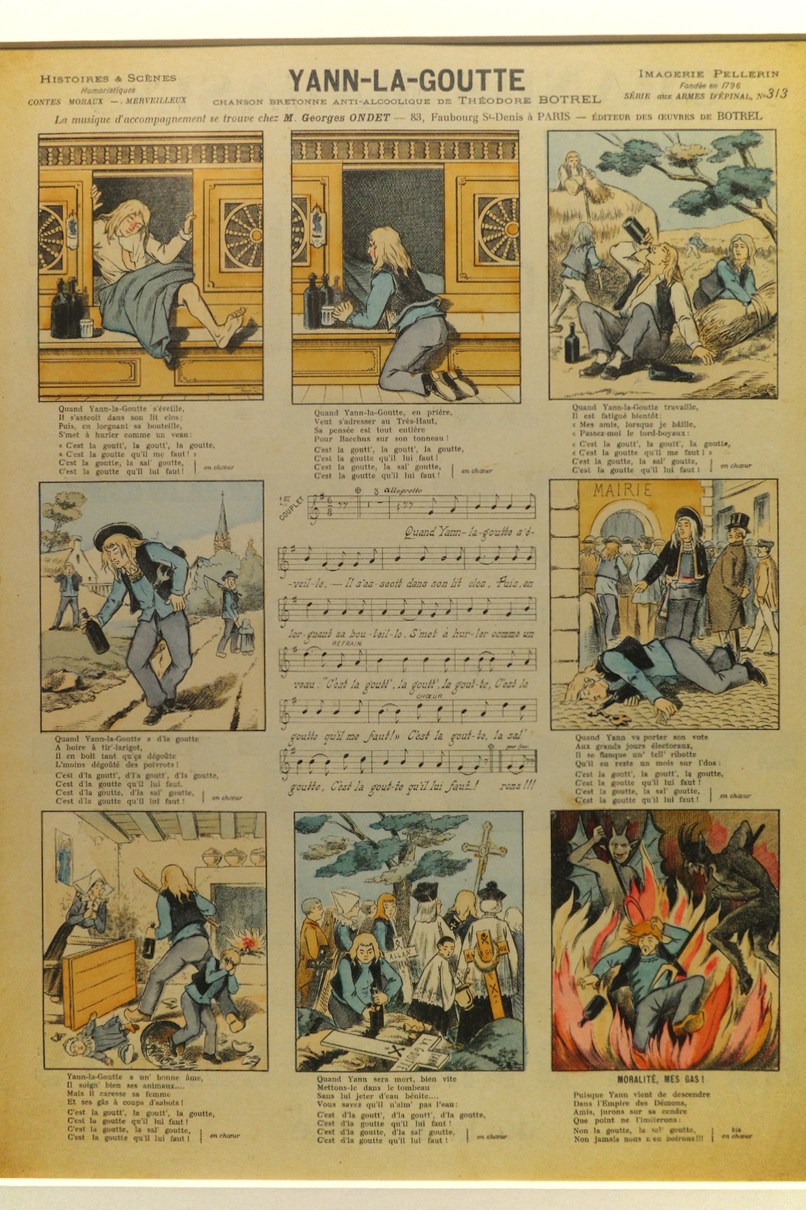 HISTOIRES & SCÈNES
Humoristiques
CONTES MORAUX — MERVEILLEUX
YANN-LA-GOUTTE
CHANSON BRETONNE ANTI-ALCOOLIQUE DE THÉODORE BOTREL
IMAGERIE PELLERIN
Fondée en 1796
SÉRIE aux ARMES D'ÉPINAL, No 313
La musique d'accompagnement se trouve chez M. Georges ONDET — 83, Faubourg St-Denis à PARIS — ÉDITEUR DES ŒUVRES DE BOTREL
Quand Yann-la-Goutte s'éveille,
Il s'asseoit dans son lit clos;
Puis, en lorgnant sa bouteille,
S'met à hurler comme un veau:
« C'est la goutt', la goutt', la goutte,
« C'est la goutte qu'il me faut! »
C'est la goutte, la sal' goutte,
C'est la goutte qu'il lui faut!
en chœur
Quand Yann-la-Goutte, en prière,
Veut s'adresser au Très-Haut,
Sa pensée est tout entière
Pour Bacchus sur son tonneau!
C'est la goutt', la goutt', la goutte,
C'est la goutte qu'il lui faut!
C'est la goutte, la sal' goutte,
C'est la goutte qu'il lui faut!
en chœur
Quand Yann-la-Goutte travaille,
Il est fatigué bientôt:
« Mes amis, lorsque je bâille,
« Passez-moi le tord-boyaux:
« C'est la goutt', la goutt', la goutte,
« C'est la goutte qu'il me faut! »
C'est la goutte, la sal' goutte,
C'est la goutte qu'il lui faut!
en chœur
1er COUPLET
Allegretto
Quand Yann-la-goutte s'é-
-veil-le, — Il s'as-seoit dans son lit clos, Puis, en
lor-gnant sa bou-teil-le. S'met à hur-ler comme un
REFRAIN
veau: "C'est la goutt', la goutt', la gout-te, C'est la
CHŒUR
goutte qu'il me faut!» C'est la gout-te, la sal'
goutte, C'est la gout-te qu'il lui faut!
rons!!!
MAIRIE
Quand Yann-la-Goutte a d'la goutte
A boire à tir'-larigot,
Il en boit tant qu'ça dégoûte
L'moins dégoûté des poivrots!
C'est d'la goutt', d'la goutt', d'la goutte,
C'est d'la goutte qu'il lui faut.
C'est d'la goutte, d'la sal' goutte,
C'est d'la goutte qu'il lui faut!
en chœur
Quand Yann va porter son vote
Aux grands jours électoraux,
Il se flanque un' tell' ribotte
Qu'il en reste un mois sur l'dos:
C'est la goutt', la goutt', la goutte,
C'est la goutte qu'il lui faut!
C'est la goutte, la sal' goutte,
C'est la goutte qu'il lui faut!
en chœur
ALLAN
Yann-la-Goutte a un' bonne âme,
Il soign' bien ses animaux...
Mais il caresse sa femme
Et ses gâs à coups d'sabots!
C'est la goutt', la goutt', la goutte,
C'est la goutte qu'il lui faut!
C'est la goutte, la sal' goutte,
C'est la goutte qu'il lui faut!
en chœur
Quand Yann sera mort, bien vite
Mettons-le dans le tombeau
Sans lui jeter d'eau bénite...
Vous savez qu'il n'aim' pas l'eau:
C'est d'la goutt', d'la goutt', d'la goutte,
C'est d'la goutte qu'il lui faut!
C'est d'la goutte, d'la sal' goutte,
C'est d'la goutte qu'il lui faut!
en chœur
MORALITÉ, MES GAS!
Puisque Yann vient de descendre
Dans l'Empire des Démons,
Amis, jurons sur sa cendre
Que point ne l'imiterons:
Non la goutte, la sal' goutte,
Non jamais nous n'en boirons!!!
bis
en chœur